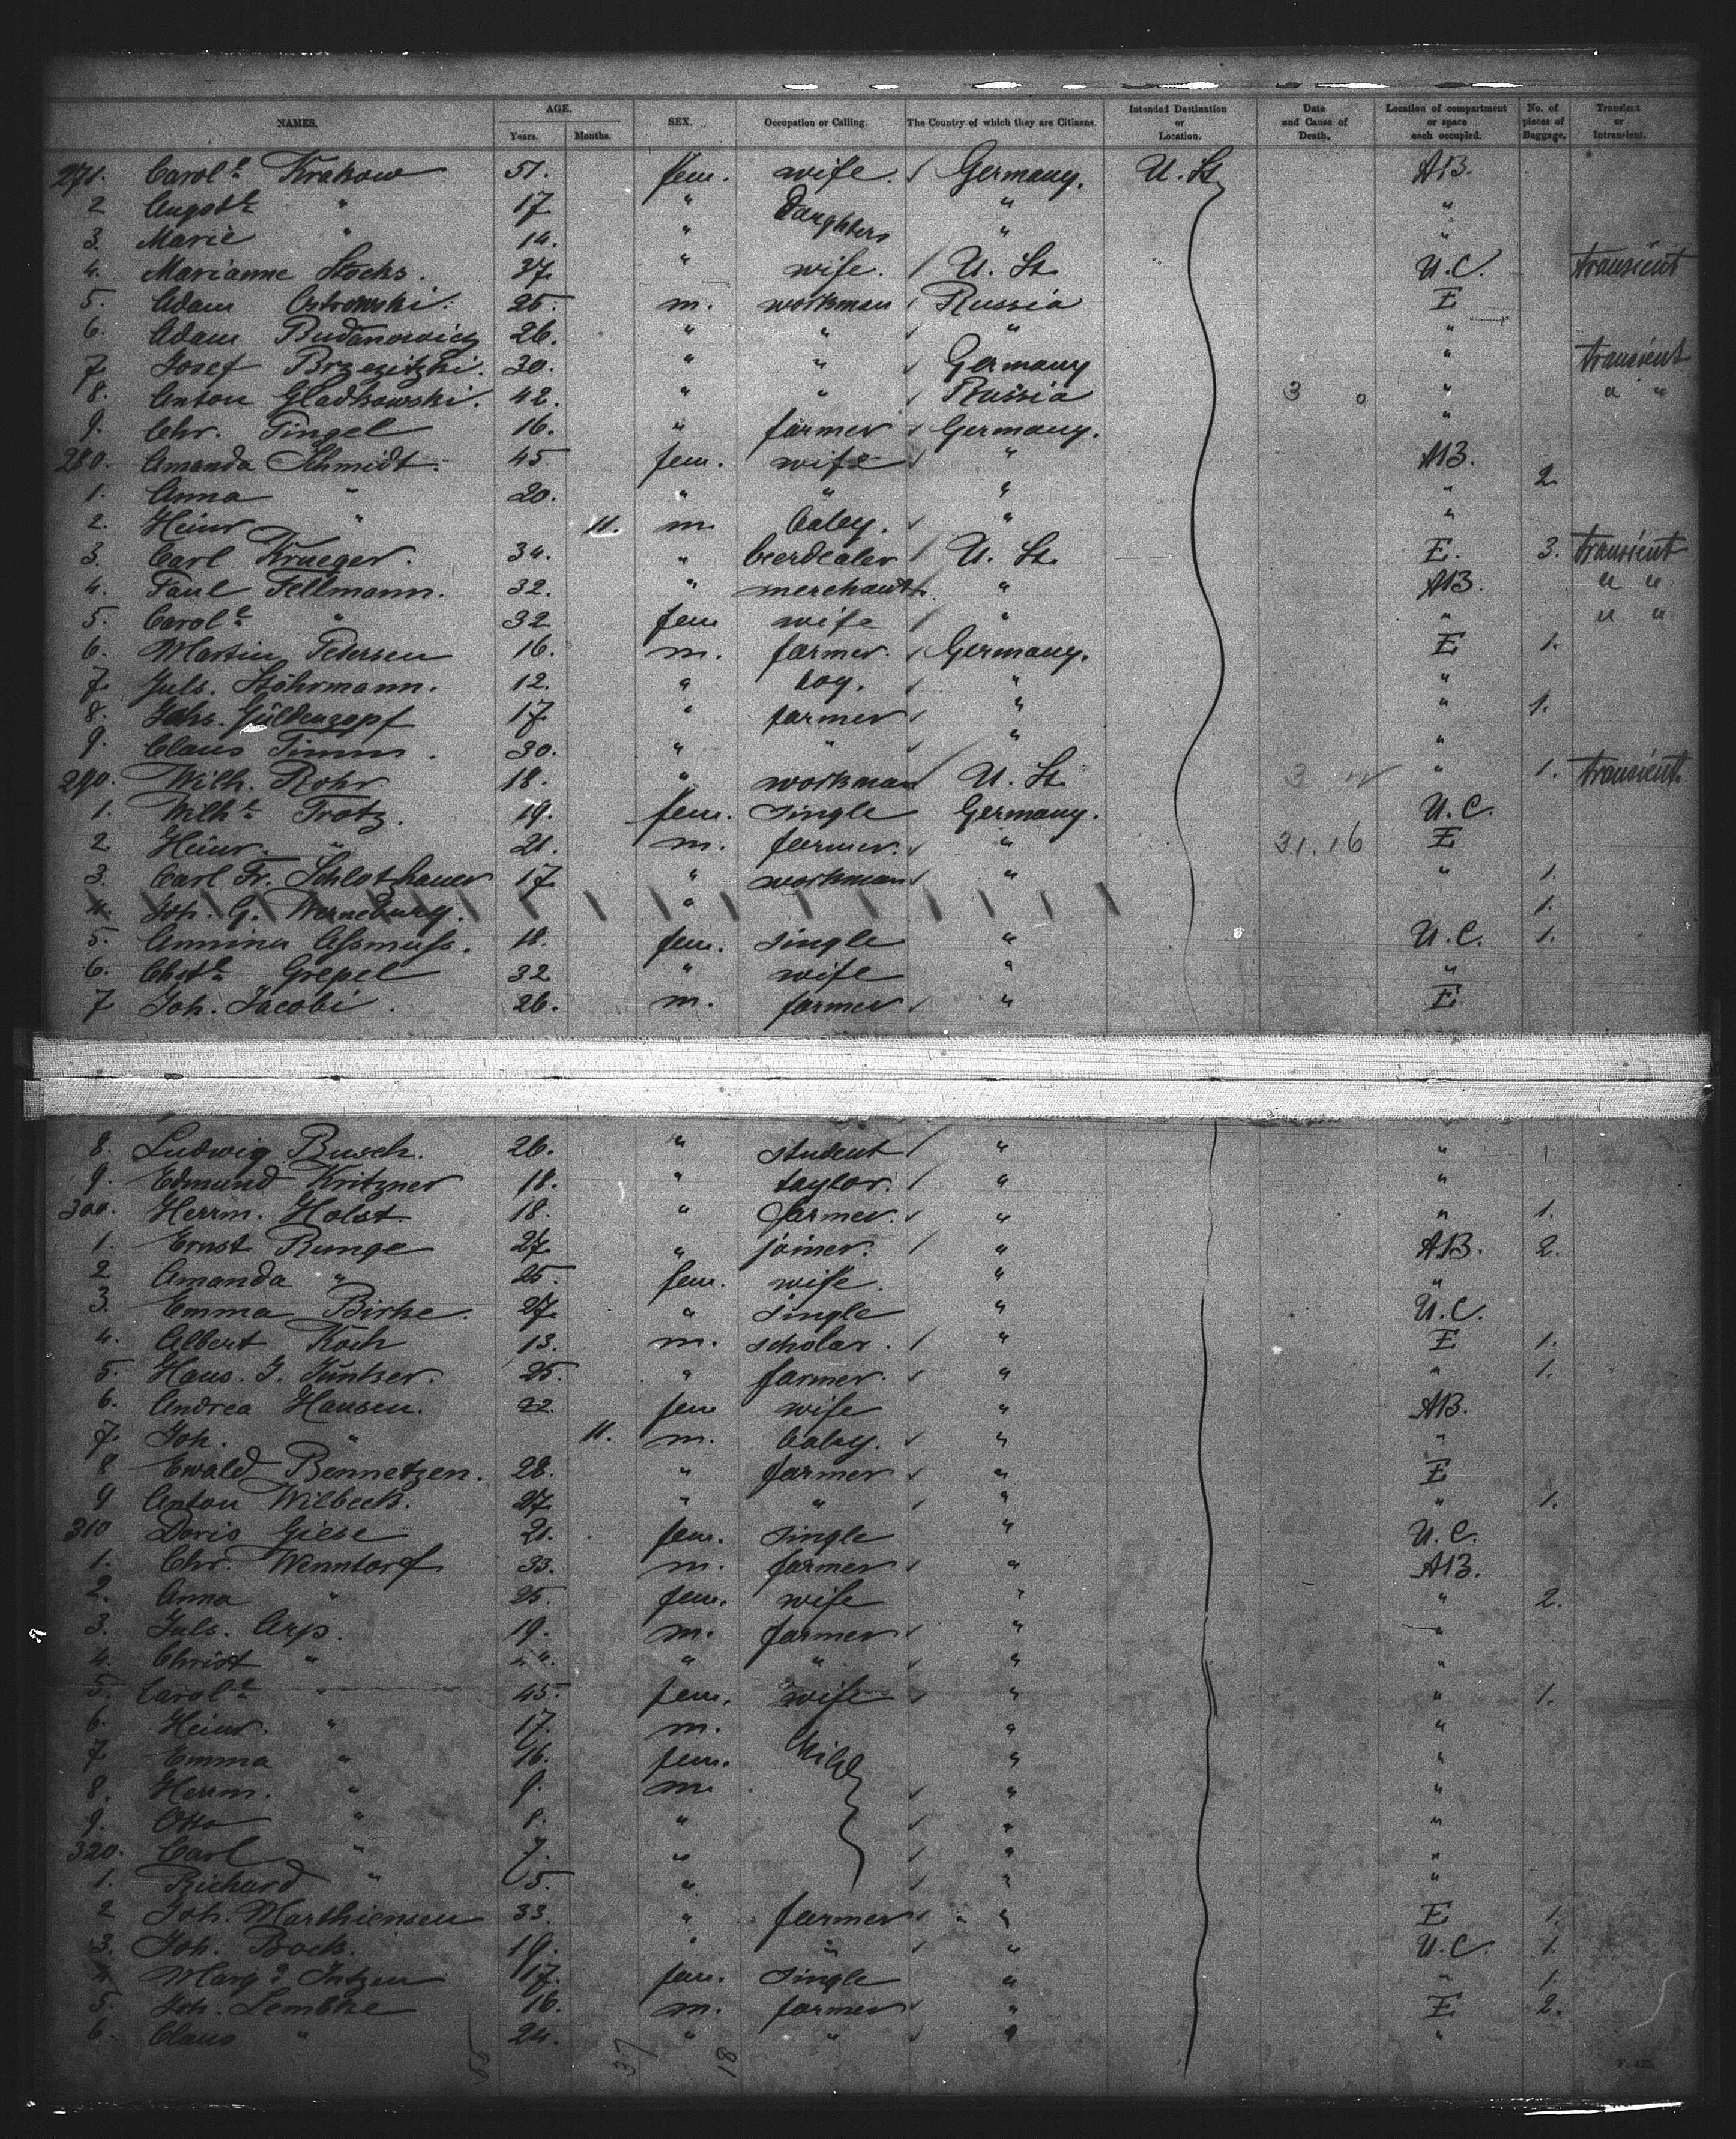 NAMES. AGE. Years. Months. SEX. Occupation or Calling. The Country of which they are Citizens. Intended Destination or Location. Date and Cause of Death. Location of compartment or space each occupied. No. of pieces of Baggage. Transient or Intransient.
271. Carole Krakow 51. fem. wife. Germany. U. St. AB.
2 Augste " 17 " daughters " "
3. Marie " 14. " " "
4. Marianne Stocks. 37 " wife. U. St. U.C. transient
5. Adam Ostrowski. 25. m. workman Russia E
6. Adam Budanowicz 26. " " " "
7. Josef Brzezitzki. 30. " " Germany " transient
8. Anton Gladkowski. 42. " " Russia 3 0 " " "
9. Chr. Tingel 16. " farmer Germany. "
280. Amanda Schmidt. 45 fem. wife " AB.
1. Anna " 20. " " " " 2
2. Heinr " 11. m. baby. " "
3. Carl Krueger. 34. " beerdealer U. St. E. 3. transient
4. Paul Fellmann. 32. " merchant " AB. " "
5. Carole " 32 fem wife " " " "
6. Martin Petersen 16. m. farmer. Germany. E 1.
7. Juls. Stöhrmann. 12. " boy. " "
8. Johs. Güldenzopf 17 " farmer " " 1.
9. Claus Timm. 30. " " " "
290. Wilh. Rohr. 18. " workman U. St. 3 " 1. transient
1. Wilhe Trotz. 19. fem. single Germany. U.C.
2 Heinr. " 21. m. farmer. " 31.16 E
3. Carl Fr. Schlothauer 17 " workman " " 1.
4. Joh. G. Werneburg. " 1.
5. Annina Assmuss. 18. fem. single " U.C. 1.
6. Chste Grepel 32 " wife " "
7 Joh. Jacobi. 26. m. farmer " E
8. Ludwig Busch. 26. " student " " 1
9. Edmund Kritzner 18. " taylor. " "
300. Herrm. Holst. 18. " farmer. " " 1.
1. Ernst Runge 27 " joiner. " AB. 2.
2 Amanda " 25. fem. wife. " "
3. Emma Birke. 27. " single " U.C.
4. Albert Koch 13. m. scholar. " E 1.
5. Hans. J. 25. " farmer. " " 1.
6. Andrea Hansen. 22. fem wife " AB.
7. Joh. " 11. m. baby. " "
8 Ewald Bennetzen. 28. " farmer " E
9 Anton Wilbeck. 27 " " " " 1.
310 Doris Giese 21. fem. single " U.C.
1. Chr. Wenntorf 33. m. farmer " AB.
2. Anna " 25. fem. wife " " 2.
3. Juls. Arp. 19. m. farmer " "
4. Christ " " " " "
5. Carole " 45. fem. wife " " 1.
6. Heinr. " 17. m. " "
7 Emma " 16. fem. " "
8. Herrm. " 9. m. " "
9. Otto " 8. " " "
320. Carl " 7. " " "
1. Richard " 5. " " "
2 Joh. Marthiensen 33. " farmer " E 1.
3. Joh. Bock. 19. " " " U.C. 1.
4 Marga Intzen 17. fem. single " " 1.
5. Joh. Lembke 16. m. farmer " E 2.
6. Claus " 24. " " " "
37 18